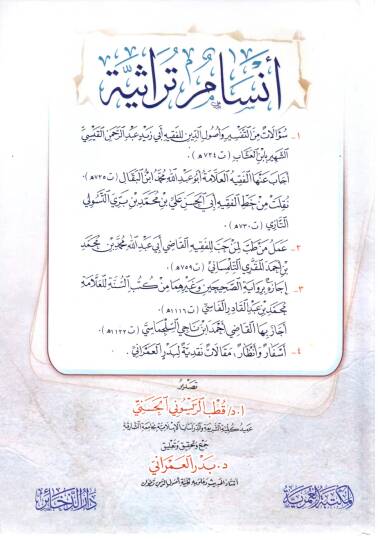 أنسام تراثية
١- سؤالات من التفسير وأصول الدين للفقيه أبي زيد عبد الرحمن القيسي
الشهير بابن العشاب (ت ٧٢٤هـ).
أجاب عنها الفقيه العلامة أبو عبد الله محمد ابن البقال (ت ٧٢٥هـ).
نقلت من خط الفقيه أبي الحسن علي بن محمد بن بري التسولي
التازي (ت ٧٣٠هـ).
٢- عمل من طب لمن حب للفقيه القاضي أبي عبد الله محمد بن محمد
بن أحمد المقري التلمساني (ت ٧٥٩هـ).
٣- إجازة برواية الصحيحين وغيرهما من كتب السنة للعلامة
محمد بن عبد القادر الفاسي (ت ١١١٦هـ).
أجاز بها القاضي أحمد ابن ناجي السجلماسي (ت ١١٢٢هـ).
٤- أسفار وأنظار، مقالات نقدية لبدر العمراني.
تصدير
أ.د/ قطب الريسوني الحسني
عميد كلية الشريعة والدراسات الإسلامية بجامعة الشارقة
جمع وتحقيق وتعليق
د. بدر العمراني
أستاذ الحديث وعلومه بكلية أصول الدين تطوان
المكتبة العمرية
دار الذخائر